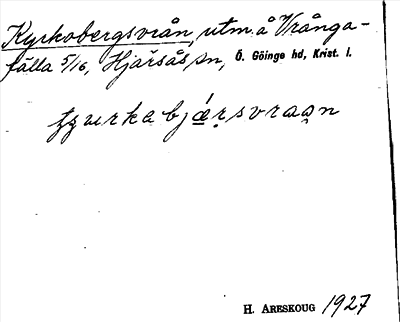 Kyrkobergsvrån, utm. å Vrånga-
fälla 5/16, Hjärsås sn, Ö. Göinge hd, Krist. l.
H. Areskoug 1927